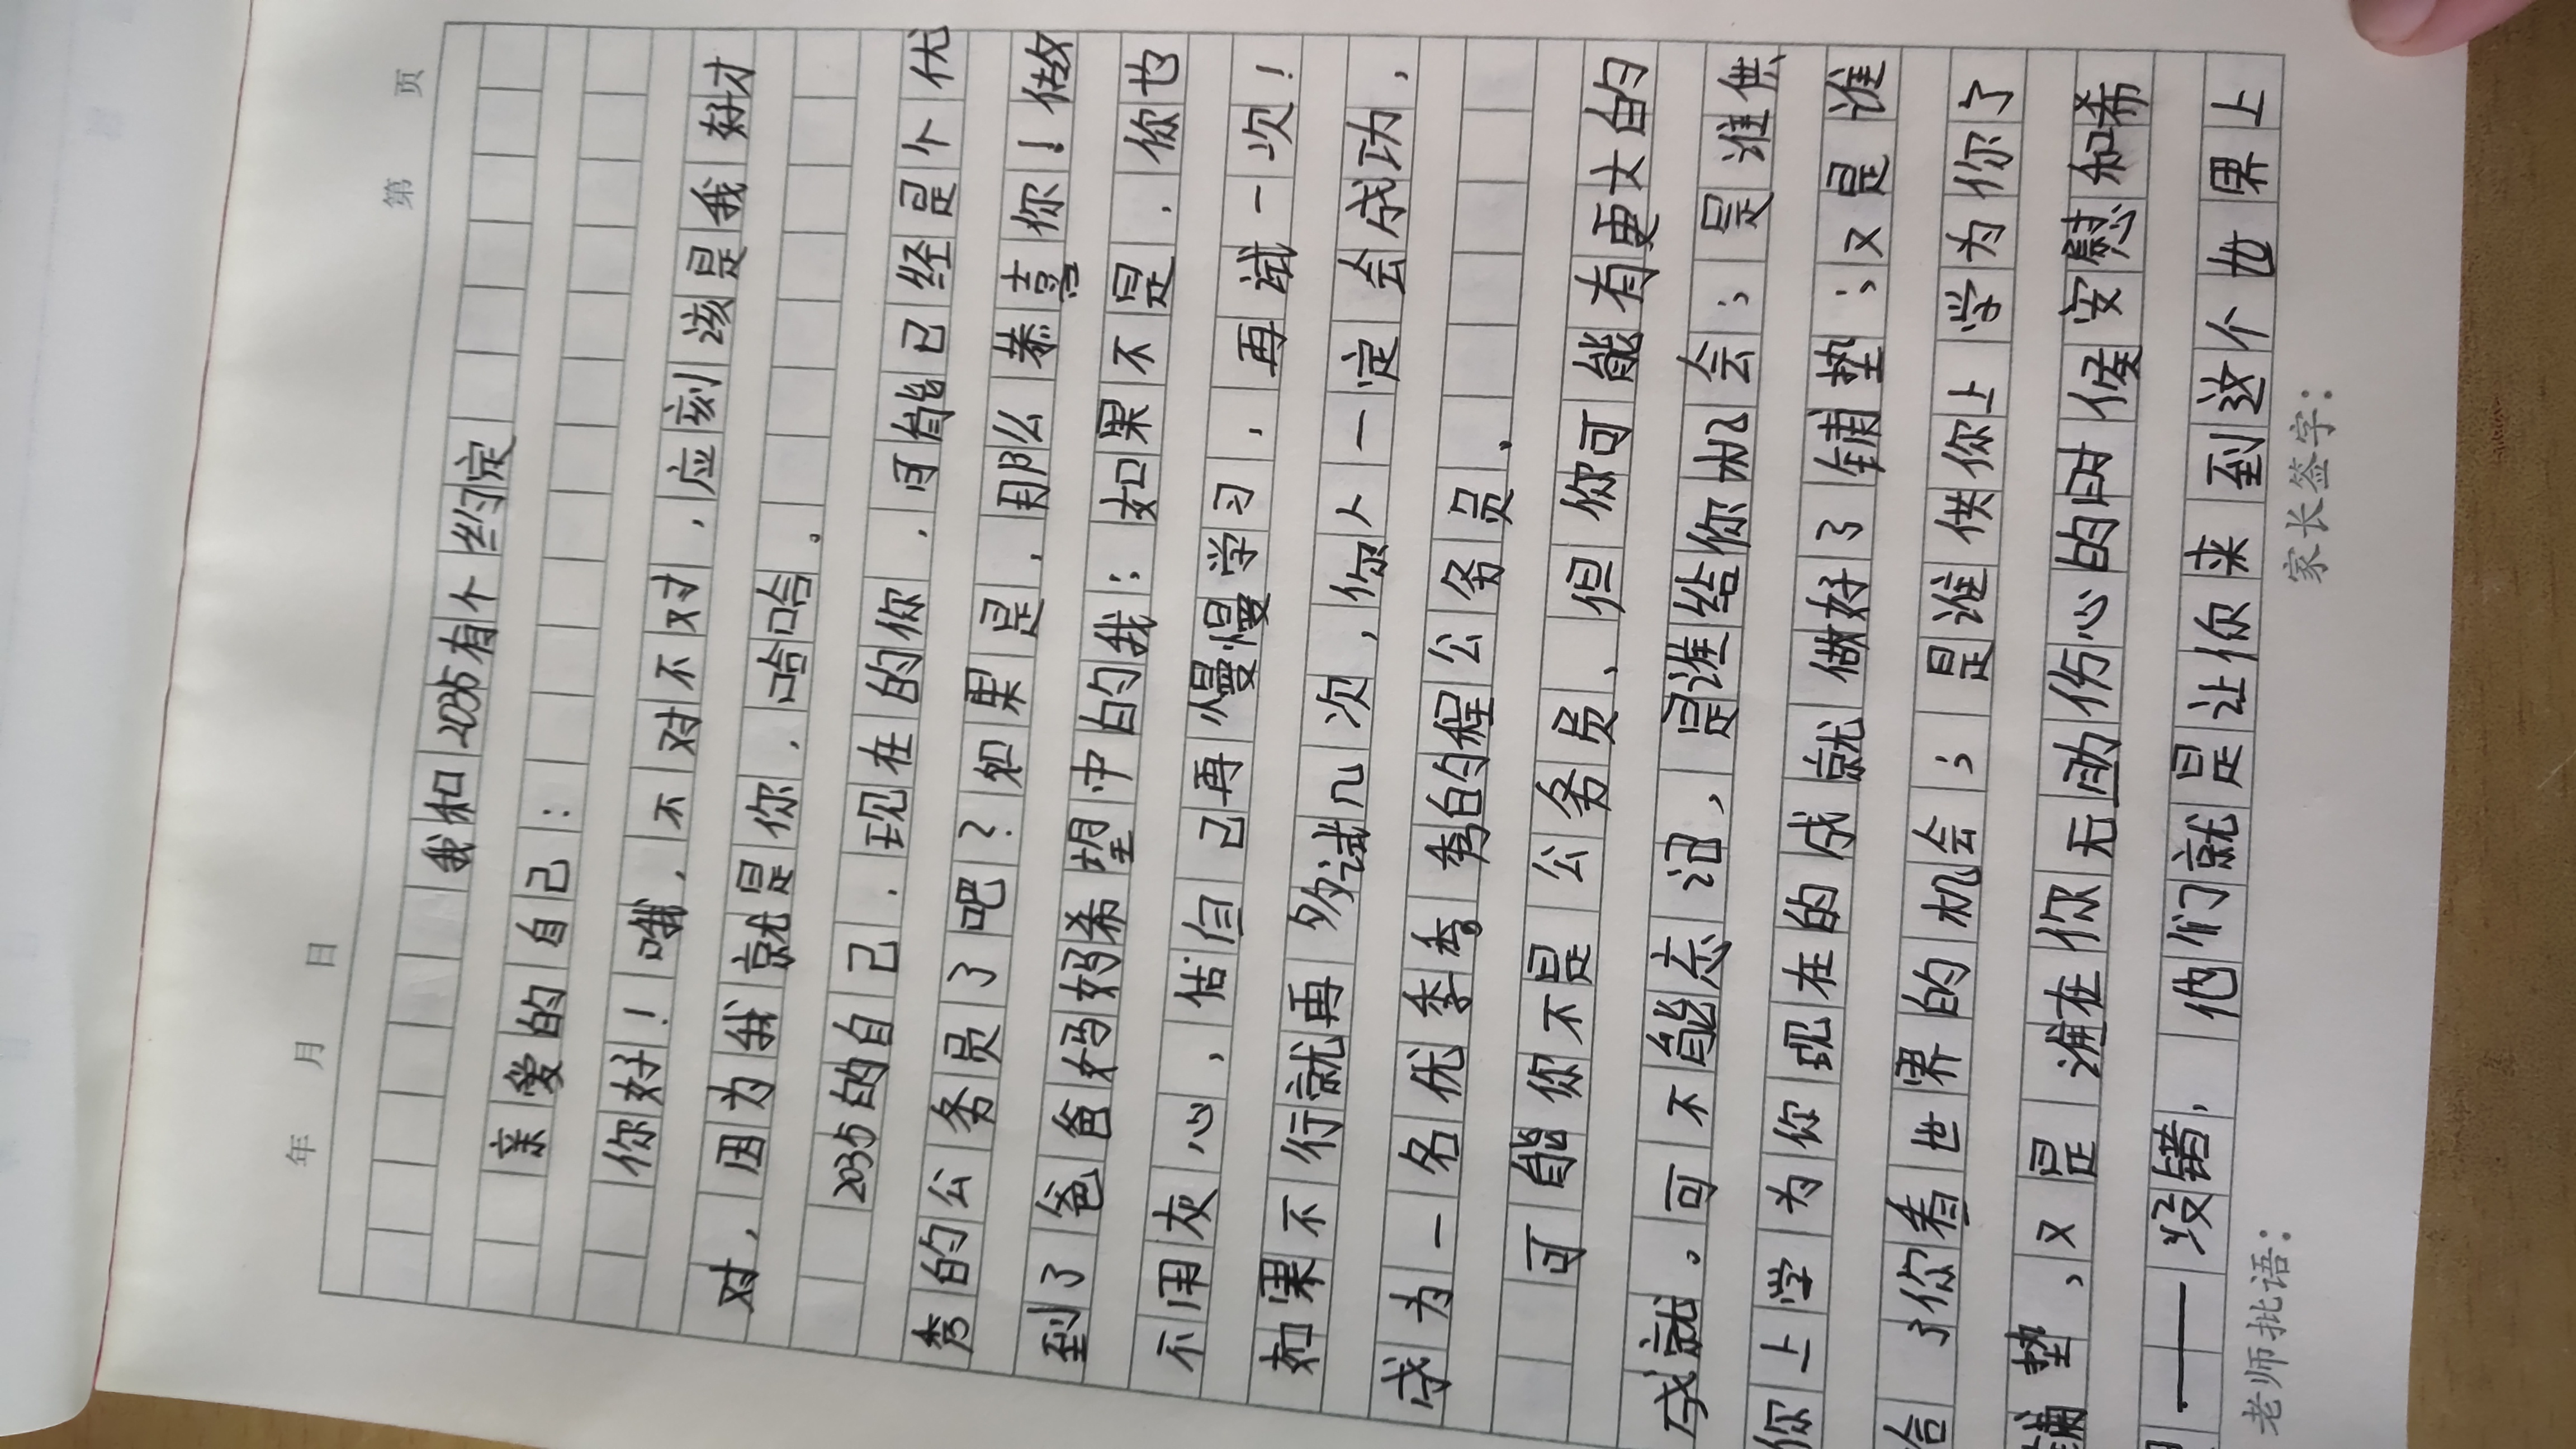 年 月 日 第 页
我和2035有个约定
亲爱的自己:
你好!哦,不对不对,应刻该是我好才
对,因为我就是你,哈哈。
2035的自己,现在的你,可能已经是个优
秀的公务员了吧?如果是,那么恭喜你!做
到了爸爸妈妈希望中的我;如果不是,你也
不用灰心,估自己再慢慢学习,再试一次!
如果不行就再多试几次,你人一定会成功,
成为一名优季季秀的程公务员。
可能你不是公务员,但你可能有更大的
成就。可不能忘记,是谁给你机会;是谁供
你上学为你现在的成就做好了铺垫;又是谁
给了你看世界的机会;是谁供你上学为你了
铺垫,又是谁在你无助伤心的时候安慰和希
——没错,他们就是让你来到这个世界上
老师批语: 家长签字: